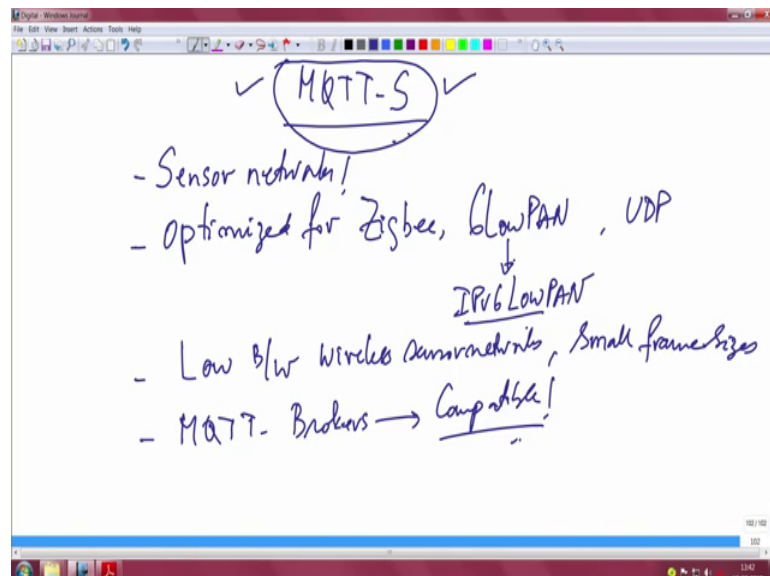 Digital - Windows Journal
File Edit View Insert Actions Tools Help
MQTT-S
- Sensor networks!
- Optimized for Zigbee, 6LowPAN, UDP
IPv6LowPAN
- Low B/W wireless sensor networks, small frame sizes
- MQTT- Brokers → Compatible!
102 / 102
102
13:42